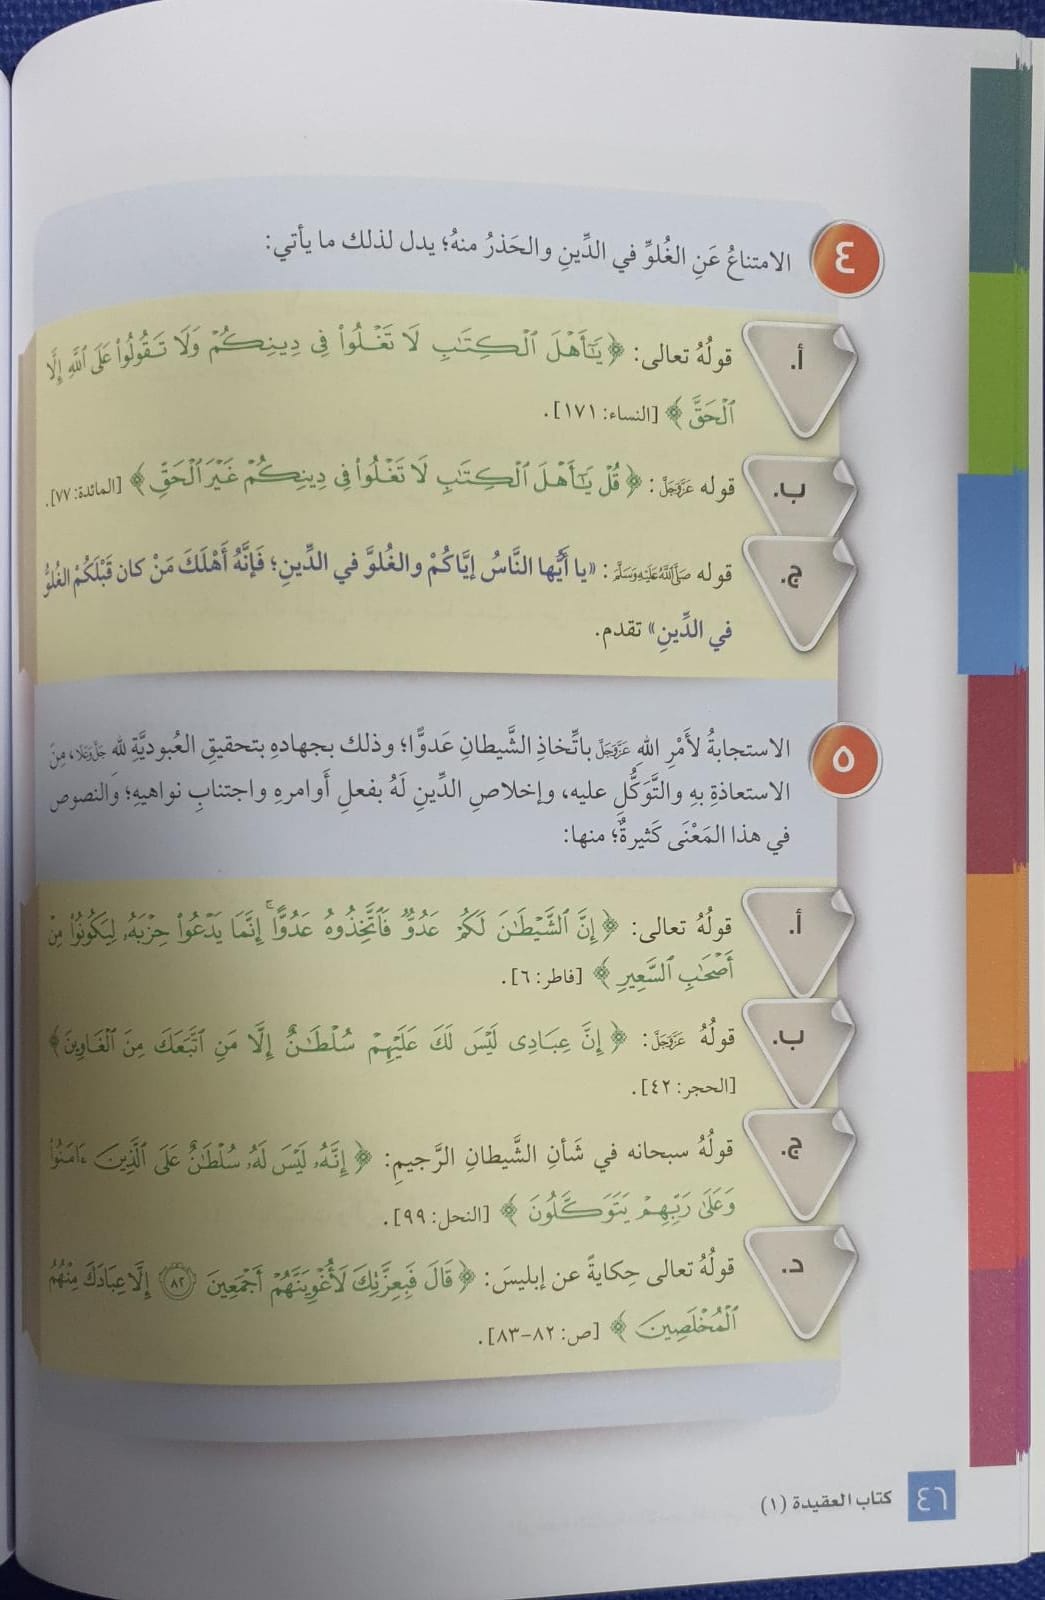 ٤
الامتناعُ عَنِ الغُلوِّ في الدِّينِ والحَذرُ منهُ؛ يدل لذلك ما يأتي:
أ. قولُهُ تعالى: ﴿ يَٰٓأَهْلَ ٱلْكِتَٰبِ لَا تَغْلُوا۟ فِى دِينِكُمْ وَلَا تَقُولُوا۟ عَلَى ٱللَّهِ إِلَّا
ٱلْحَقَّ ﴾ [النساء: ١٧١].
ب. قوله عَزَّوَجَلَّ: ﴿ قُلْ يَٰٓأَهْلَ ٱلْكِتَٰبِ لَا تَغْلُوا۟ فِى دِينِكُمْ غَيْرَ ٱلْحَقِّ ﴾ [المائدة: ٧٧].
ج. قوله صَلَّى اللَّهُ عَلَيْهِ وَسَلَّمَ: «يا أَيُّها النَّاسُ إيَّاكُمْ والغُلوَّ في الدِّينِ؛ فَإنَّهُ أَهْلَكَ مَنْ كان قَبْلَكُمْ الغُلوُّ
في الدِّينِ» تقدم.
٥
الاستجابةُ لأَمْرِ اللهِ عَزَّوَجَلَّ باتِّخاذِ الشَّيطانِ عَدوًّا؛ وذلك بجهادهِ بتحقيقِ العُبوديَّةِ للهِ جَلَّ وَعَلَا، مِنَ
الاستعاذةِ بهِ والتَّوَكُّلِ عليه، وإخلاصِ الدِّينِ لَهُ بفعلِ أوامرهِ واجتنابِ نواهيهِ؛ والنصوص
في هذا المَعْنَى كَثيرةٌ؛ منها:
أ. قولُهُ تعالى: ﴿ إِنَّ ٱلشَّيْطَٰنَ لَكُمْ عَدُوٌّ فَٱتَّخِذُوهُ عَدُوًّا ۚ إِنَّمَا يَدْعُوا۟ حِزْبَهُۥ لِيَكُونُوا۟ مِنْ
أَصْحَٰبِ ٱلسَّعِيرِ ﴾ [فاطر: ٦].
ب. قولُهُ عَزَّوَجَلَّ: ﴿ إِنَّ عِبَادِى لَيْسَ لَكَ عَلَيْهِمْ سُلْطَٰنٌ إِلَّا مَنِ ٱتَّبَعَكَ مِنَ ٱلْغَاوِينَ ﴾
[الحجر: ٤٢].
ج. قولُهُ سبحانه في شَأنِ الشَّيطانِ الرَّجيمِ: ﴿ إِنَّهُۥ لَيْسَ لَهُۥ سُلْطَٰنٌ عَلَى ٱلَّذِينَ ءَامَنُوا۟
وَعَلَىٰ رَبِّهِمْ يَتَوَكَّلُونَ ﴾ [النحل: ٩٩].
د. قولُهُ تعالى حِكايةً عن إبليسَ: ﴿ قَالَ فَبِعِزَّتِكَ لَأُغْوِيَنَّهُمْ أَجْمَعِينَ ٨٢ إِلَّا عِبَادَكَ مِنْهُمُ
ٱلْمُخْلَصِينَ ﴾ [ص: ٨٢-٨٣].
٤٦ كتاب العقيدة (١)